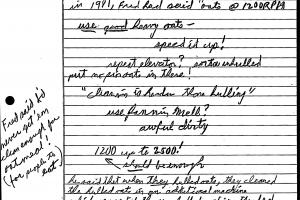 in 1991, Fred had said "oats @ 1200 RPM
use good heavy oats —
speed it up!
repeat elevator? sorta unhulled
put no pinoats in there!
"cleaning is harder than hulling"
use fanning mill?
awful dirty
1200 up to 2500!
should be enough
he said that when they hulled oats, they cleaned
the hulled oats in an additional machine
Fred said is
never get 'em
clean enough for
oatmeal!
(for people to
eat)